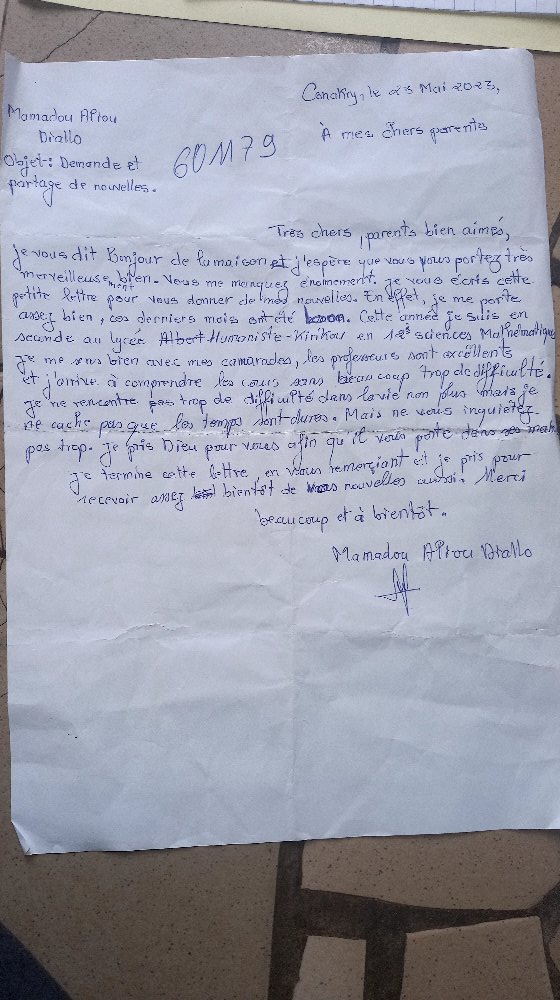 Conakry, le 23 Mai 2023,
Mamadou Aliou
Diallo
À mes chers parents
Objet: Demande et
partage de nouvelles.
601179
Très chers, parents bien aimés,
je vous dit Bonjour de la maison et j'espère que vous vous portez très
merveilleusement bien. Vous me manquez énormement. je vous écris cette
petite lettre pour vous donner de mes nouvelles. En effet, je me porte
assez bien, ces derniers mois ont été. Cette année je suis en
seconde au lycée Albert Humaniste-Kirikou en sciences Mathématiques
je me sens bien avec mes camarades, les professeurs sont excellents
et j'arrive à comprendre les cours sans beaucoup trop de difficulté.
je ne rencontre pas trop de difficulté dans la vie non plus mais je
ne cache pas que les temps sont dures. Mais ne vous inquietez
pas trop. je pris Dieu pour vous afin qu'il vous porte dans ses mains
je termine cette lettre, en vous remerçiant et je pris pour
recevoir assez bientôt de vos nouvelles aussi. Merci
beaucoup et à bientôt.
Mamadou Aliou Diallo